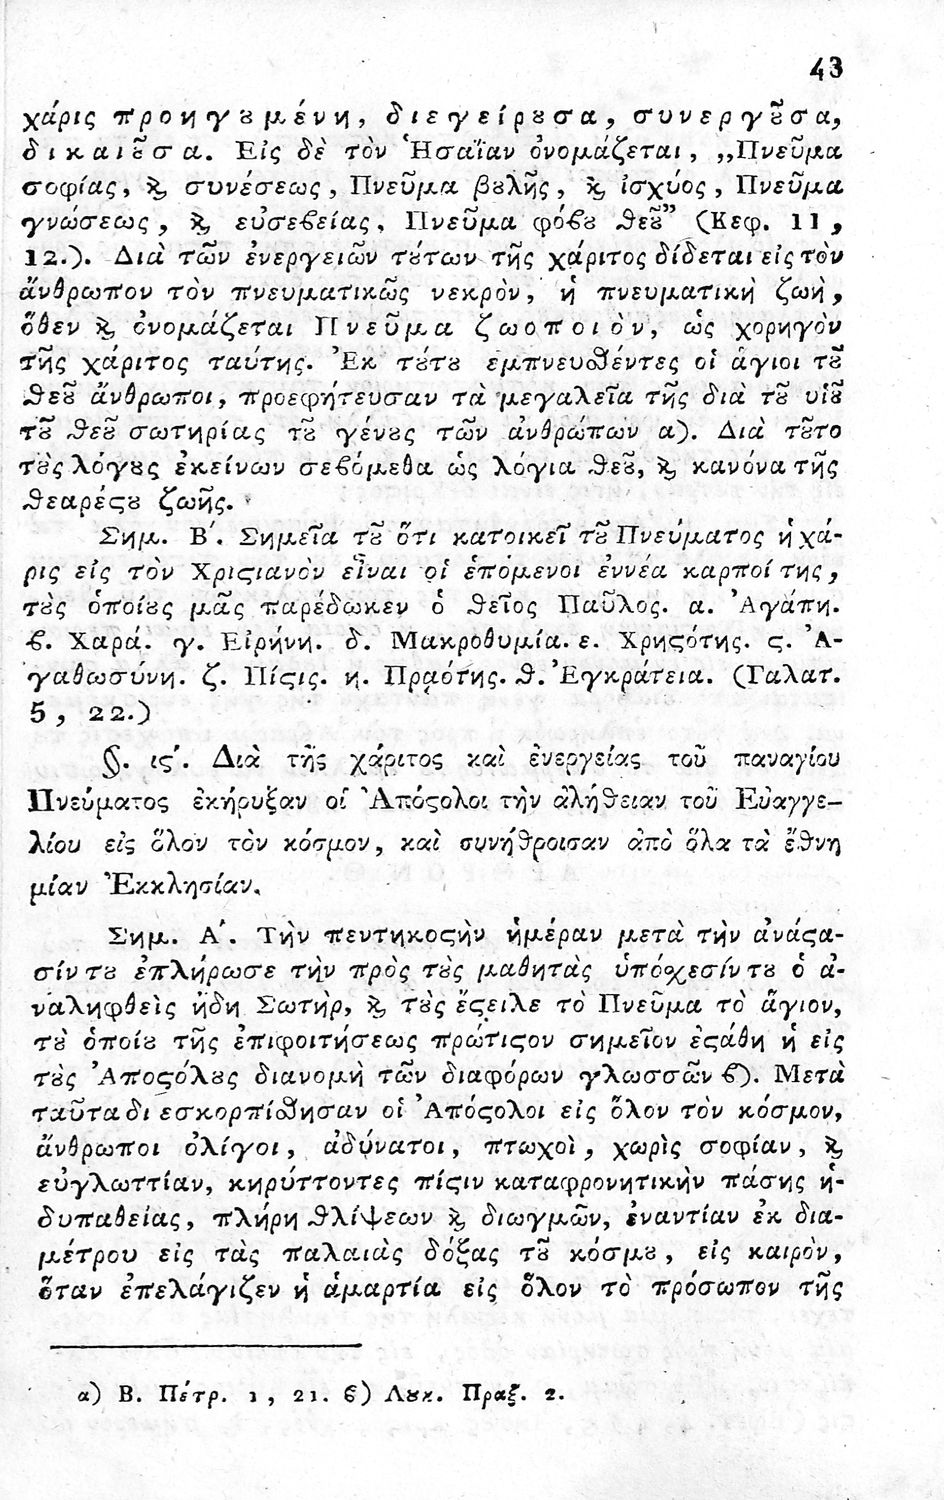 43
χάρις προηγȣμένη, διεγείρȣσα, συνεργȣ͂σα,
δικαιȣ͂σα. Εἰς δὲ τὸν Ἡσαΐαν ὀνομάζεται, „Πνεῦμα
σοφίας, ϗ συνέσεως, Πνεῦμα βȣλῆς, ϗ ἰσχύος, Πνεῦμα
γνώσεως, ϗ εὐσεβείας, Πνεῦμα φόβȣ Θεȣ͂” (Κεφ. 11,
12.). Διὰ τῶν ἐνεργειῶν τȣ́των τῆς χάριτος δίδεται εἰς τὸν
ἄνθρωπον τὸν πνευματικῶς νεκρὸν, ἡ πνευματικὴ ζωὴ,
ὅθεν ϗ ὀνομάζεται Πνεῦμα ζωοποιὸν, ὡς χορηγὸν
τῆς χάριτος ταύτης. Ἐκ τȣ́τȣ ἐμπνευσθέντες οἱ ἅγιοι τȣ͂
Θεȣ͂ ἄνθρωποι, προεφήτευσαν τὰ μεγαλεῖα τῆς διὰ τȣ͂ υἱȣ͂
τȣ͂ Θεȣ͂ σωτηρίας τȣ͂ γένȣς τῶν ἀνθρώπων α). Διὰ τȣ͂το
τȣ̀ς λόγȣς ἐκείνων σεβόμεθα ὡς λόγια Θεȣ͂, ϗ κανόνα τῆς
θεαρέϛȣ ζωῆς.
Σημ. Β΄. Σημεῖα τȣ͂ ὅτι κατοικεῖ τȣ͂ Πνεύματος ἡ χά-
ρις εἰς τὸν Χριϛιανὸν εἶναι οἱ ἑπόμενοι ἐννέα καρποί της,
τȣ̀ς ὁποίȣς μᾶς παρέδωκεν ὁ θεῖος Παῦλος. α. Ἀγάπη.
ϐ. Χαρά. γ. Εἰρήνη. δ. Μακροθυμία. ε. Χρηϛότης. ϛ. Ἀ-
γαθωσύνη. ζ. Πίϛις. η. Πρᾳότης. θ. Ἐγκράτεια. (Γαλατ.
5, 22.)
§. ιϛ΄. Διὰ τῆς χάριτος καὶ ἐνεργείας τοῦ παναγίου
Πνεύματος ἐκήρυξαν οἱ Ἀπόϛολοι τὴν ἀλήθειαν τοῦ Εὐαγγε-
λίου εἰς ὅλον τὸν κόσμον, καὶ συνήθροισαν ἀπὸ ὅλα τὰ ἔθνη
μίαν Ἐκκλησίαν.
Σημ. Α΄. Τὴν πεντηκοϛὴν ἡμέραν μετὰ τὴν ἀνάϛα-
σίν τȣ ἐπλήρωσε τὴν πρὸς τȣ̀ς μαθητὰς ὑπόσχεσίν τȣ ὁ ἀ-
ναληφθεὶς ἤδη Σωτὴρ, ϗ τȣ̀ς ἔϛειλε τὸ Πνεῦμα τὸ ἅγιον,
τȣ͂ ὁποίȣ τῆς ἐπιφοιτήσεως πρώτιϛον σημεῖον ἐϛάθη ἡ εἰς
τȣ̀ς Ἀποϛόλȣς διανομὴ τῶν διαφόρων γλωσσῶν ϐ). Μετὰ
ταῦτα διεσκορπίσθησαν οἱ Ἀπόϛολοι εἰς ὅλον τὸν κόσμον,
ἄνθρωποι ὀλίγοι, ἀδύνατοι, πτωχοὶ, χωρὶς σοφίαν, ϗ
εὐγλωττίαν, κηρύττοντες πίϛιν καταφρονητικὴν πάσης ἡ-
δυπαθείας, πλήρη θλίψεων ϗ διωγμῶν, ἐναντίαν ἐκ δια-
μέτρου εἰς τὰς παλαιὰς δόξας τȣ͂ κόσμȣ, εἰς καιρὸν,
ὅταν ἐπελάγιζεν ἡ ἁμαρτία εἰς ὅλον τὸ πρόσωπον τῆς
α) Β. Πέτρ. 1, 21. ϐ) Λȣκ. Πραξ. 2.